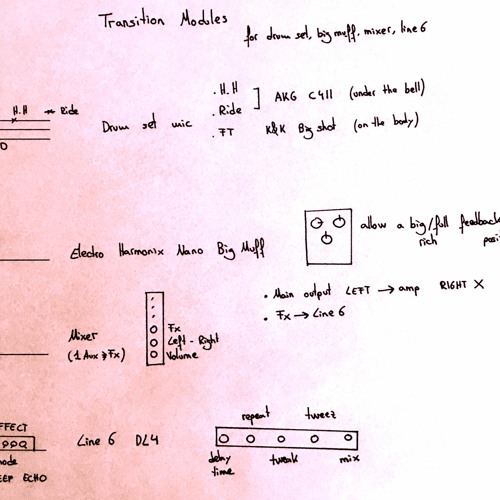 Transition Modules
for drum set, big muff, mixer, line 6
H.H → Ride
Drum set mic
. H.H
. Ride
. FT
AKG C411 (under the bell)
K&K Big shot (on the body)
Electro Harmonix Nano Big Muff
allow a big/full feedback
rich
• Main output LEFT → amp RIGHT X
• Fx → Line 6
Mixer
(1 Aux → Fx)
Fx
Left - Right
Volume
EFFECT
Line 6 DL4
repeat tweez
delay time
tweak
mix